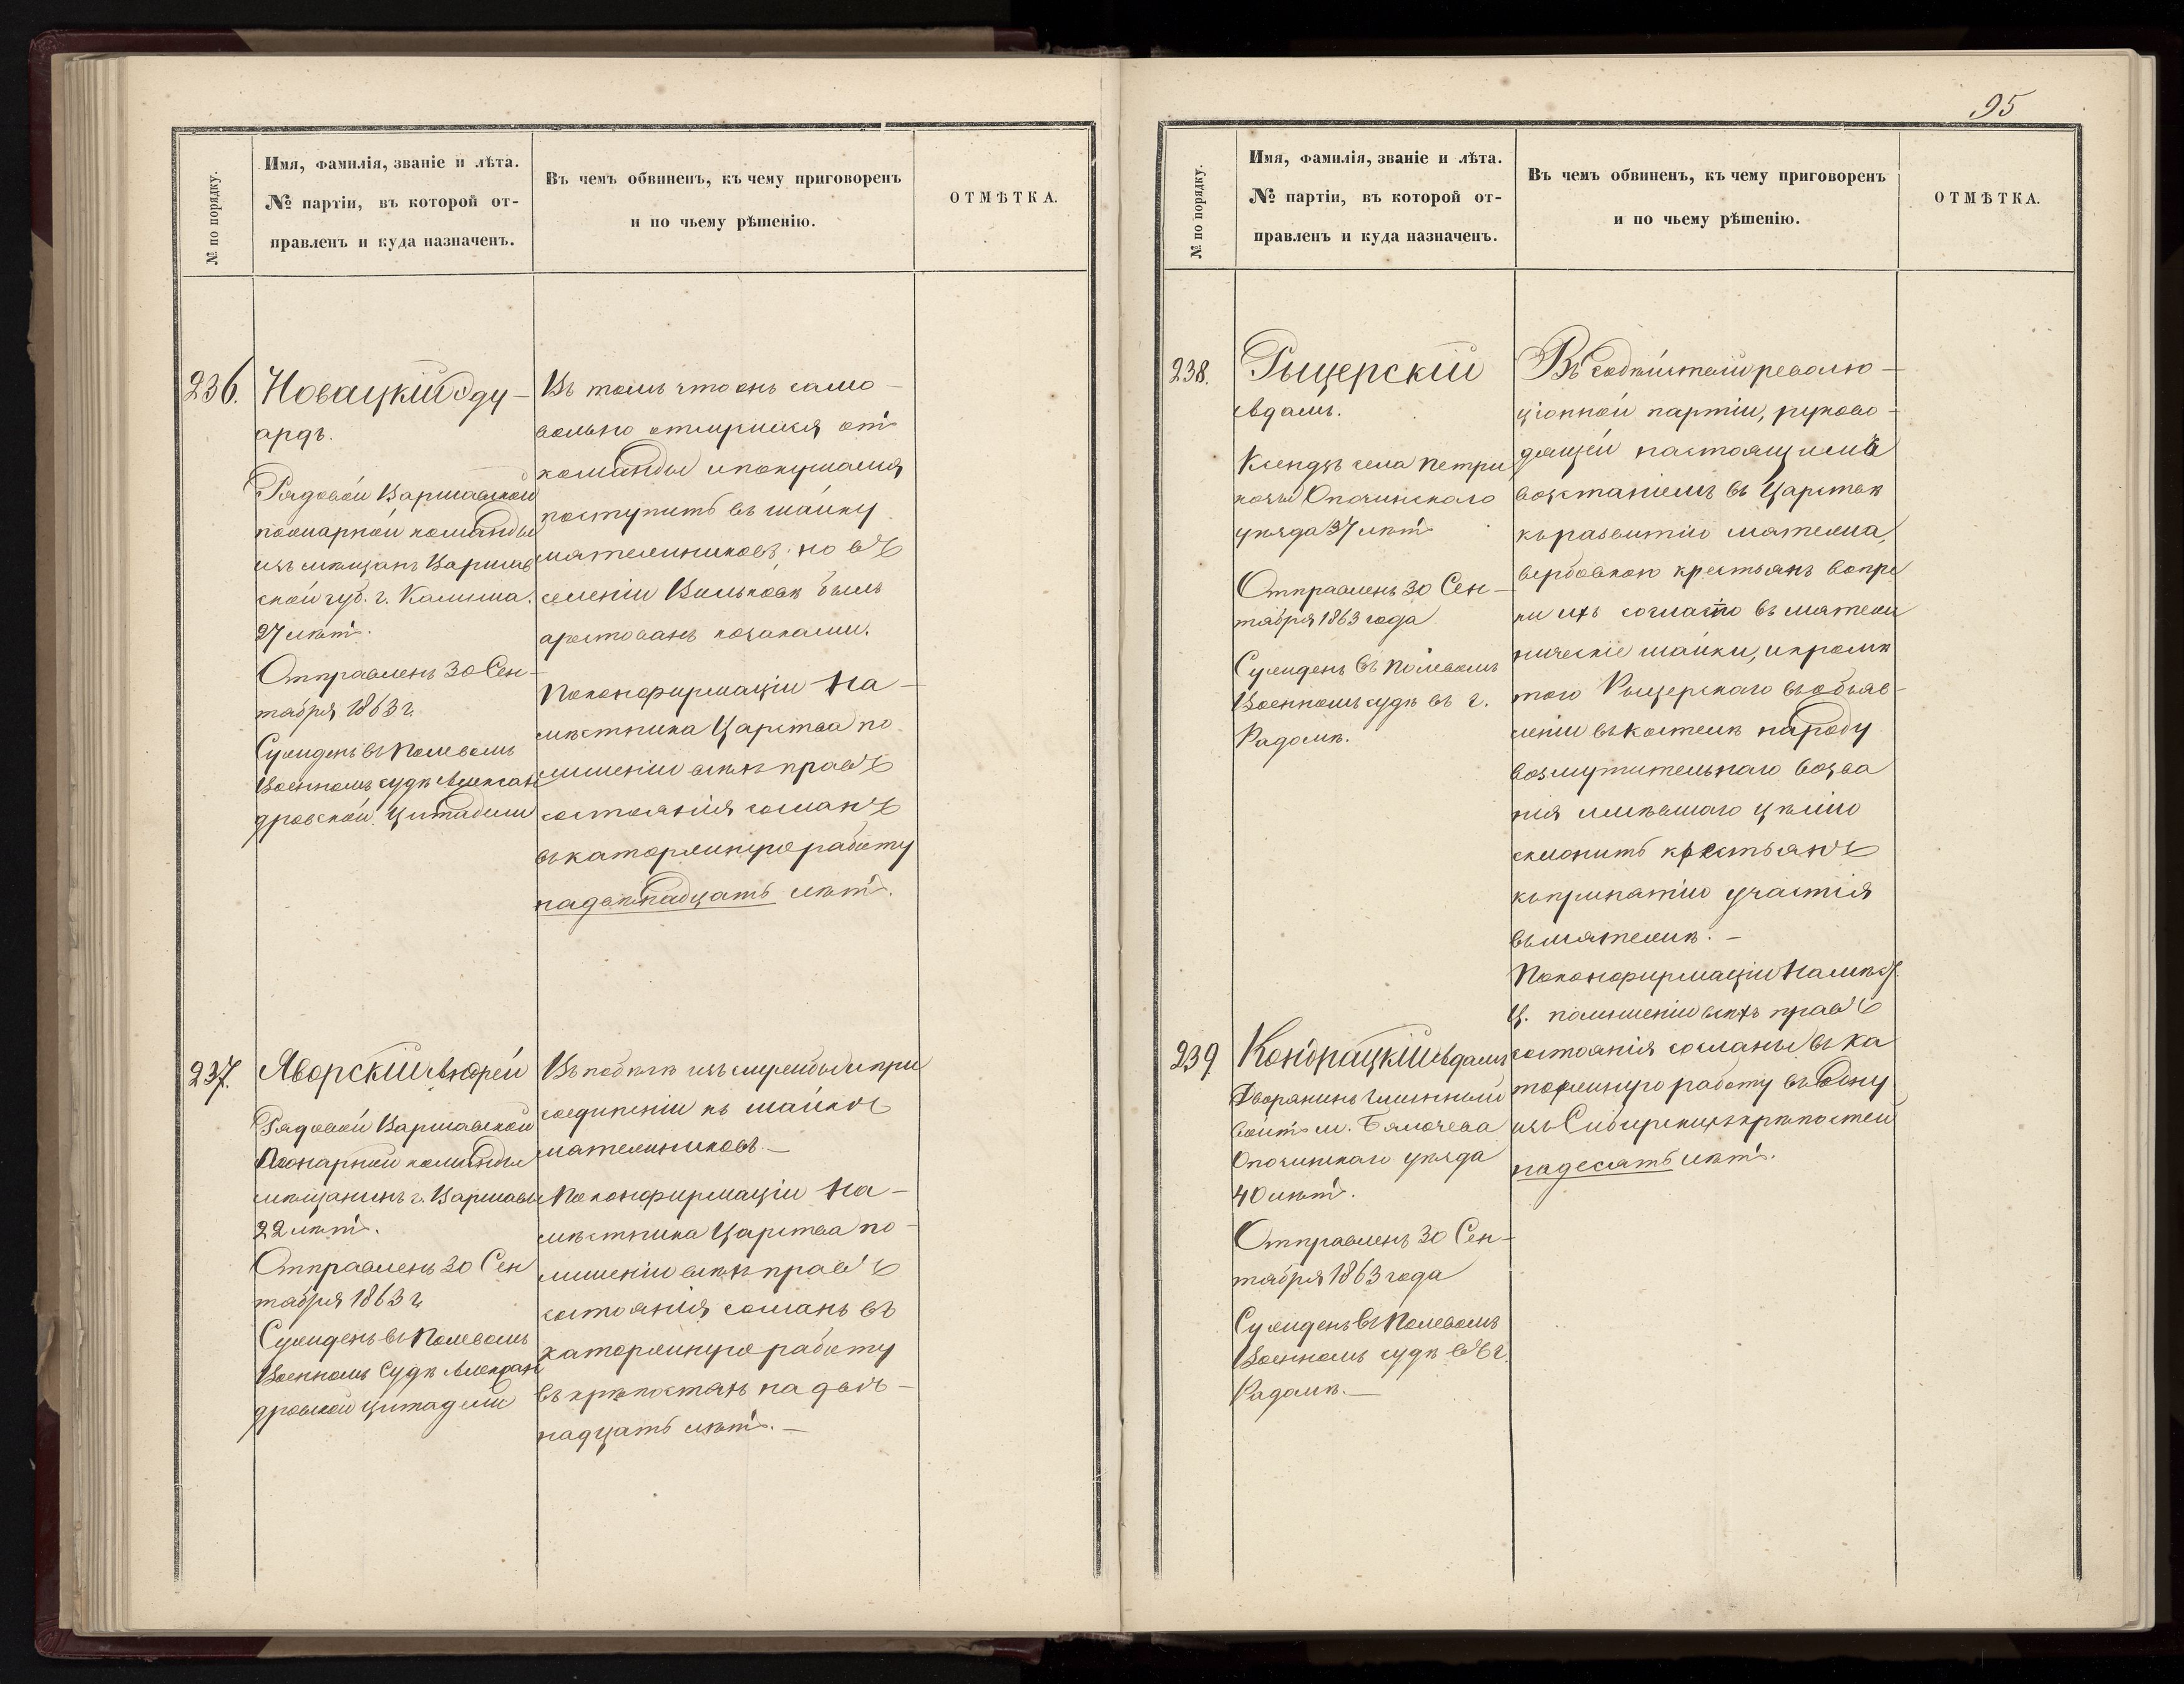 № по порядку.
Имя, фамилія, званіе и лѣта.
№ партіи, въ которой от-
правленъ и куда назначенъ.
Въ чемъ обвиненъ, къ чему приговоренъ
и по чьему рѣшенію.
ОТМѢТКА.
236.
Новацкій Эду-
ардъ.
Рядовой Варшавской
пожарной команды
изъ мѣщанъ Варшав
ской губ. г. Калиша.
27 лѣтъ.
Отправленъ 30 Сен-
тября 1863 г.
Сужденъ въ Полевомъ
Военномъ судѣ Алексан
дровской Цитадели
Въ томъ что онъ само-
вольно отлучился отъ
команды и покушался
поступить въ шайку
мятежниковъ; но въ
селеніи Вильковѣ былъ
арестованъ козаками.
По конфирмаціи На-
мѣстника Царства по
лишеніи всѣхъ правъ
состоянія сосланъ
въ каторжную работу
на двѣнадцать лѣтъ.
237.
Яворскій Андрей
Рядовой Варшавской
Пожарной команды
мѣщанинъ г. Варшавы
22 лѣтъ.
Отправленъ 30 Сен
тября 1863 г.
Сужденъ въ Полевомъ
Военномъ Судѣ Алексан
дровской цитадели
Въ побѣгѣ изъ службы и при
соединеніи къ шайкѣ
мятежниковъ.—
По конфирмаціи На-
мѣстника Царства по-
лишеніи всѣхъ правъ
состоянія сосланъ въ
каторжную работу
въ крѣпостяхъ на двѣ-
надцать лѣтъ.—
95
№ по порядку.
Имя, фамилія, званіе и лѣта.
№ партіи, въ которой от-
правленъ и куда назначенъ.
Въ чемъ обвиненъ, къ чему приговоренъ
и по чьему рѣшенію.
ОТМѢТКА.
238.
Рыцерскій
Адамъ.
Ксендзъ села Петри
козы Опочинскаго
уѣзда 37 лѣтъ
Отправленъ 30 Сен-
тября 1863 года
Сужденъ въ Полевомъ
Военномъ судѣ въ г.
Радомѣ.
Въ содѣйствіи револю-
ціонной партіи, руково-
дящей настоящимъ
возстаніемъ въ Царствѣ
къ развитію мятежа,
вербовкою крестьянъ вопре
ки ихъ согласію въ мятеж
ническіе шайки, и кромѣ
того Рыцерскаго въ объяв-
леніи въ костелѣ народу
возмутительнаго возва
нія имѣвшаго цѣлію
склонить крестьянъ
къ принятію участія
въ мятежѣ.—
По конфирмаціи Намѣст.
Ц. по лишеніи всѣхъ правъ
состоянія сосланы въ ка
торжную работу въ одну
изъ Сибирскихъ крѣпостей
на десять лѣтъ.
239
Кондрацкій Адамъ
Дворянинъ гминный
войтъ м. Бялочева
Опочинскаго уѣзда
40 лѣтъ.
Отправленъ 30 Сен-
тября 1863 года
Сужденъ въ Полевомъ
Военномъ судѣ въ г.
Радомѣ.—